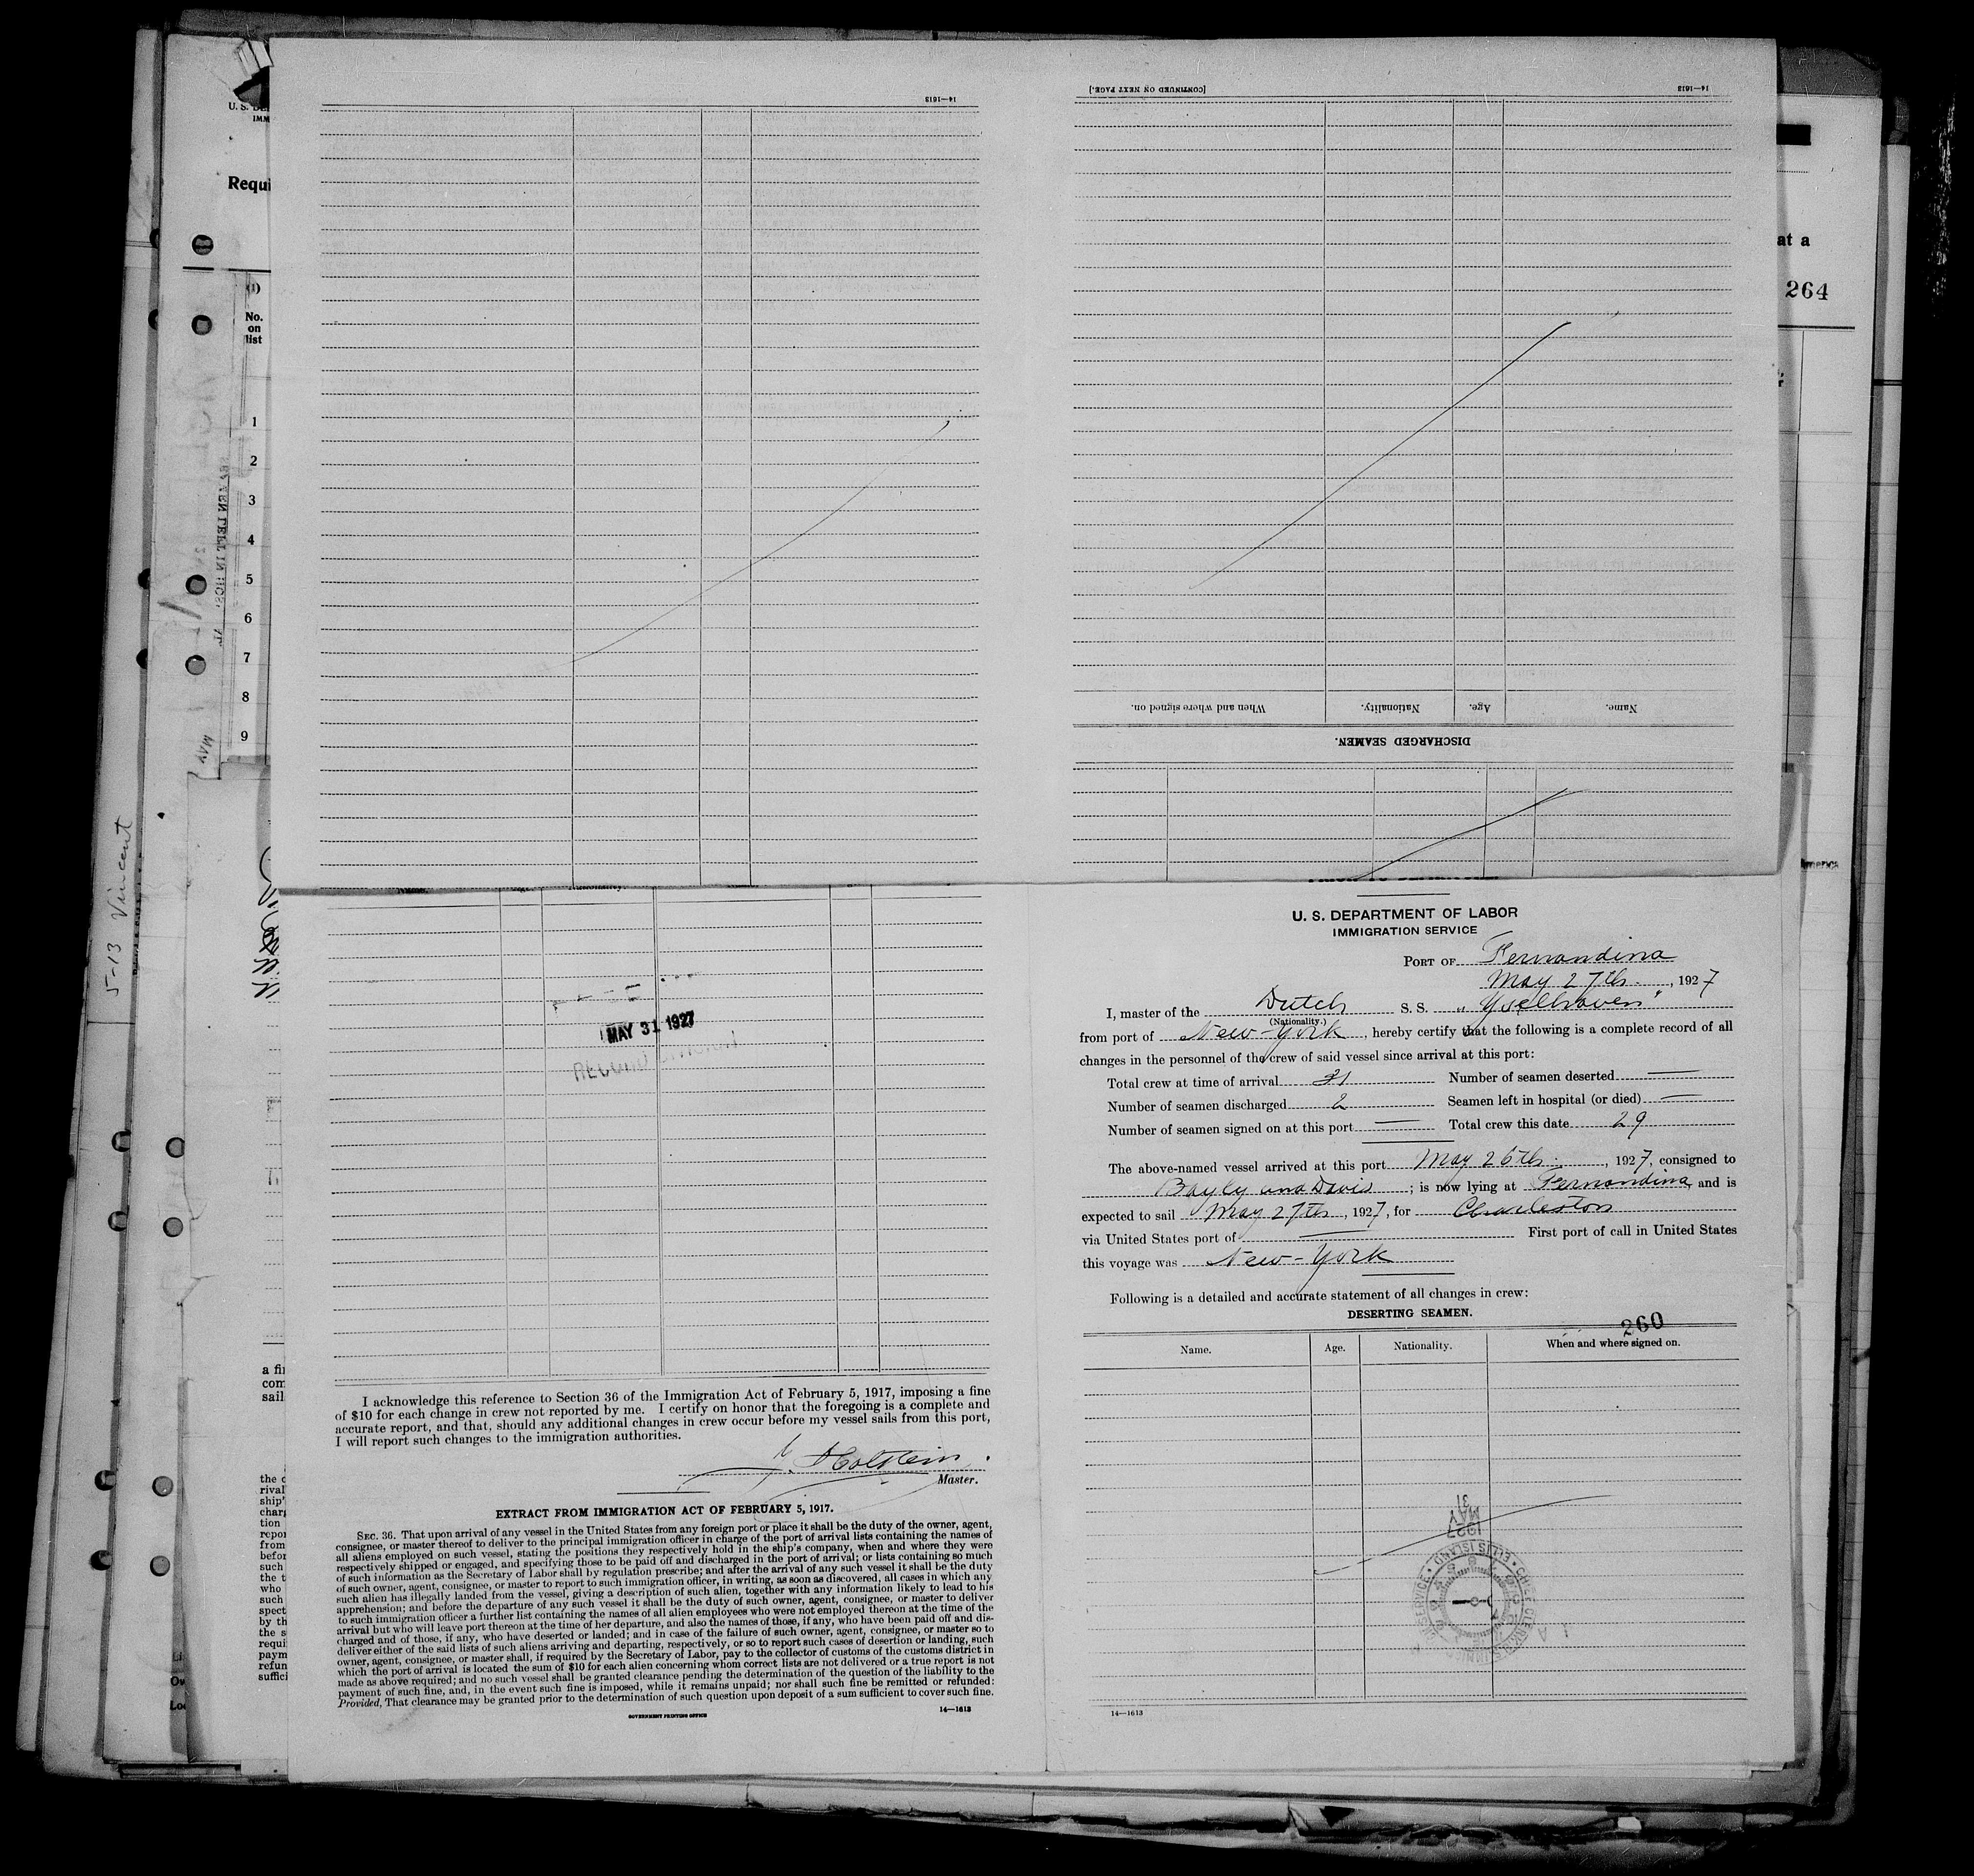 14—1613
[CONTINUED ON NEXT PAGE.]
14—1613
When and where signed on.
Nationality.
Age.
Name.
DISCHARGED SEAMEN.
U. S. DE
IMM
Requi
(1)
No.
on
list
1
2
3
4
5
6
7
8
9
MAY
5-13 Vincent
at a
264
America
MAY 31 1927
RECORD DIVISION
I acknowledge this reference to Section 36 of the Immigration Act of February 5, 1917, imposing a fine
of $10 for each change in crew not reported by me. I certify on honor that the foregoing is a complete and
accurate report, and that, should any additional changes in crew occur before my vessel sails from this port,
I will report such changes to the immigration authorities.
Holstein.
Master.
EXTRACT FROM IMMIGRATION ACT OF FEBRUARY 5, 1917.
SEC. 36. That upon arrival of any vessel in the United States from any foreign port or place it shall be the duty of the owner, agent,
consignee, or master thereof to deliver to the principal immigration officer in charge of the port of arrival lists containing the names of
all aliens employed on such vessel, stating the positions they respectively hold in the ship's company, when and where they were
respectively shipped or engaged, and specifying those to be paid off and discharged in the port of arrival; or lists containing so much
of such information as the Secretary of Labor shall by regulation prescribe; and after the arrival of any such vessel it shall be the duty
of such owner, agent, consignee, or master to report to such immigration officer, in writing, as soon as discovered, all cases in which any
such alien has illegally landed from the vessel, giving a description of such alien, together with any information likely to lead to his
apprehension; and before the departure of any such vessel it shall be the duty of such owner, agent, consignee, or master to deliver
to such immigration officer a further list containing the names of all alien employees who were not employed thereon at the time of the
arrival but who will leave port thereon at the time of her departure, and also the names of those, if any, who have been paid off and dis-
charged and of those, if any, who have deserted or landed; and in case of the failure of such owner, agent, consignee, or master so to
deliver either of the said lists of such aliens arriving and departing, respectively, or so to report such cases of desertion or landing, such
owner, agent, consignee, or master shall, if required by the Secretary of Labor, pay to the collector of customs of the customs district in
which the port of arrival is located the sum of $10 for each alien concerning whom correct lists are not delivered or a true report is not
made as above required; and no such vessel shall be granted clearance pending the determination of the question of the liability to the
payment of such fine, and, in the event such fine is imposed, while it remains unpaid; nor shall such fine be remitted or refunded:
Provided, That clearance may be granted prior to the determination of such question upon deposit of a sum sufficient to cover such fine.
GOVERNMENT PRINTING OFFICE
14—1613
U. S. DEPARTMENT OF LABOR
IMMIGRATION SERVICE
PORT OF Fernandina
May 27th, 1927
I, master of the Dutch S. S. "Yselhaven"
(Nationality.)
from port of New-York, hereby certify that the following is a complete record of all
changes in the personnel of the crew of said vessel since arrival at this port:
Total crew at time of arrival 31 Number of seamen deserted —
Number of seamen discharged 2 Seamen left in hospital (or died) —
Number of seamen signed on at this port — Total crew this date 29
The above-named vessel arrived at this port May 26th, 1927, consigned to
Bayly and Davis; is now lying at Fernandina, and is
expected to sail May 27th, 1927, for Charleston
via United States port of — First port of call in United States
this voyage was New-York
Following is a detailed and accurate statement of all changes in crew:
DESERTING SEAMEN.
260
Name. Age. Nationality. When and where signed on.
1927
MAY
31
ELLIS ISLAND
14—1613
a fi
com
sail
the c
rival
ship'
char
tion
repor
from
befor
such
the t
who
such
spect
by th
the s
requi
paym
refun
suffici